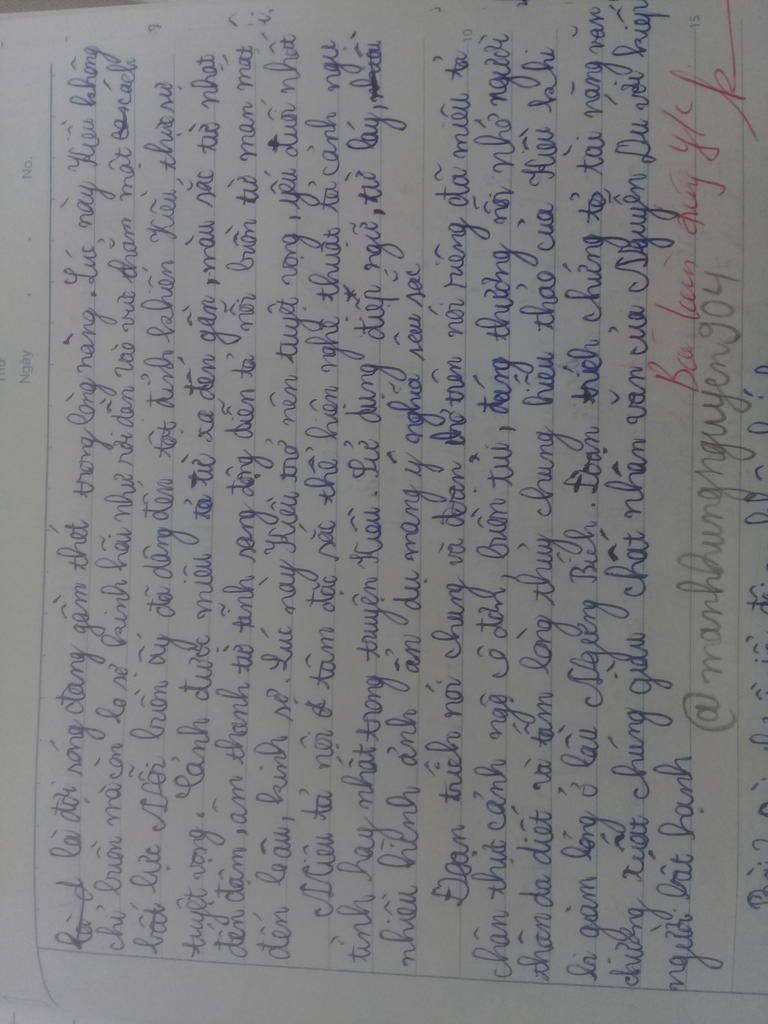 No.
Ngày
là đời sóng đang gầm thét trong lòng nàng. Lúc này Kiều không
chỉ buồn mà còn lo sợ kinh hãi như rơi dần vào vực thẳm một cách
bất lực. Nỗi buồn ấy đã dâng đến tột đỉnh khiến Kiều thực sự
tuyệt vọng. Cảnh được miêu tả từ xa đến gần, màu sắc từ nhạt
đến đậm, âm thanh từ tĩnh sang động diễn tả nỗi buồn từ man mát
đến lo âu, kinh sợ. Lúc này Kiều trở nên tuyệt vọng, yếu đuối nhất
Miêu tả nội tâm đặc sắc thể hiện nghệ thuật tả cảnh ngụ
tình hay nhất trong truyện Kiều. Sử dụng điệp ngữ, từ láy,
nhiều hình ảnh ẩn dụ mang ý nghĩa sâu sắc
Đoạn trích nói chung và đoạn thơ trên nói riêng đã miêu tả
chân thực cảnh ngộ cô đơn, buồn tủi, đáng thương nỗi nhớ người
thân da diết và tấm lòng thủy chung hiếu thảo của Kiều khi
bị giam lỏng ở lầu Ngưng Bích. Đoạn trích chứng tỏ tài năng văn
chương xuất chúng giàu chất nhân văn của Nguyễn Du với kiếp
người bất hạnh
Bài làm đúng y/c
@manhhungnguyen904